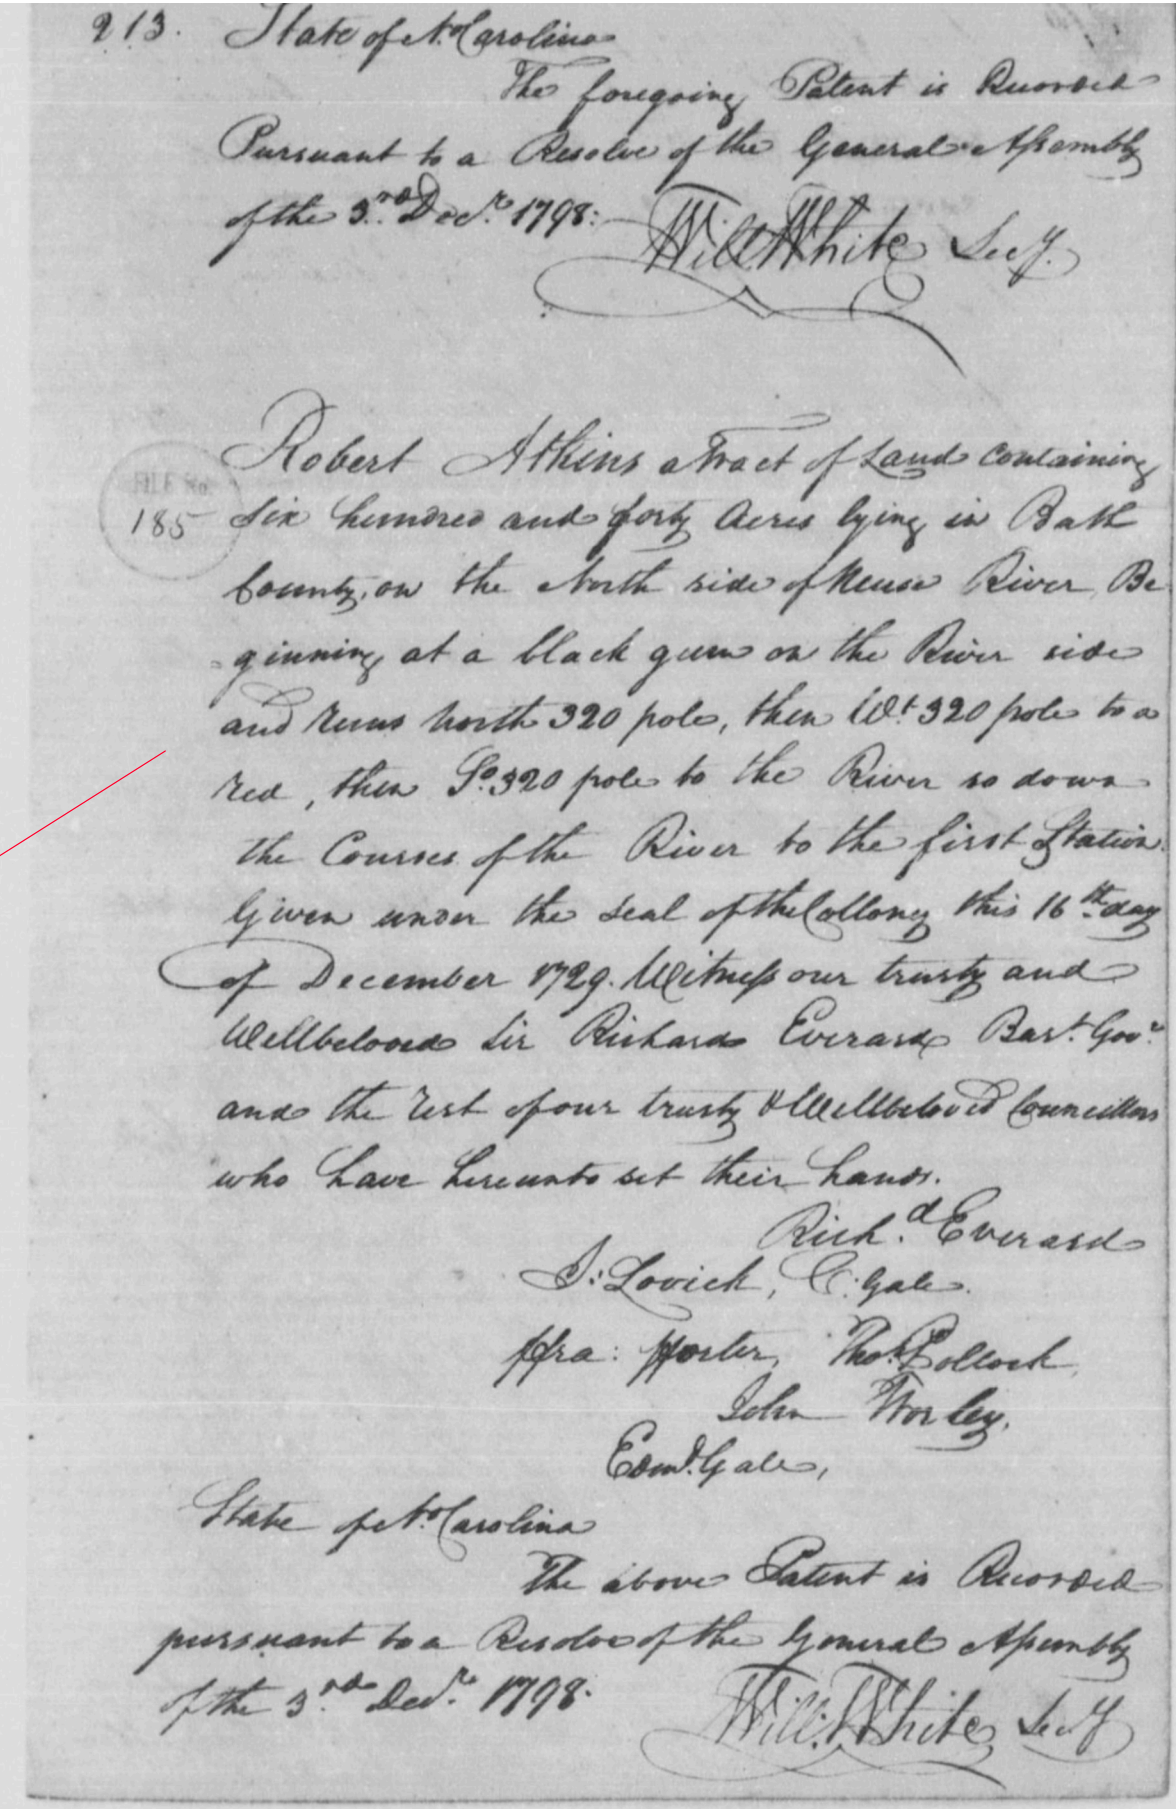 213. State of No. Carolina
The foregoing Patent is Recorded
Pursuant to a Resolve of the General Assembly
of the 3.rd Decr. 1798:
Will White Secy.
Robert Atkins a Tract of Land containing
FILE No.
185
Six hundred and forty Acres lying in Bath
County, on the North side of Neuse River, Be
=ginning at a black gum on the River side
and runs North 320 pole, then Wt. 320 pole to a
red, then So. 320 pole to the River so down
the Courses of the River to the first Station.
Given under the Seal of the Collony this 16th. day
of December 1729. Witness our trusty and
Wellbeloved Sir Richard Everard Bart. Govr.
and the rest of our trusty & Wellbeloved Councillors
who have hereunto set their hands.
Richd. Everard
J: Lovick, C: Gale.
ffra: fforster, Thos. Pollock
John Worley.
Edmd. Gale,
State of No. Carolina
The above Patent is Recorded
pursuant to a Resolve of the General Assembly
of the 3rd. Decr. 1798.
Will: White Secy